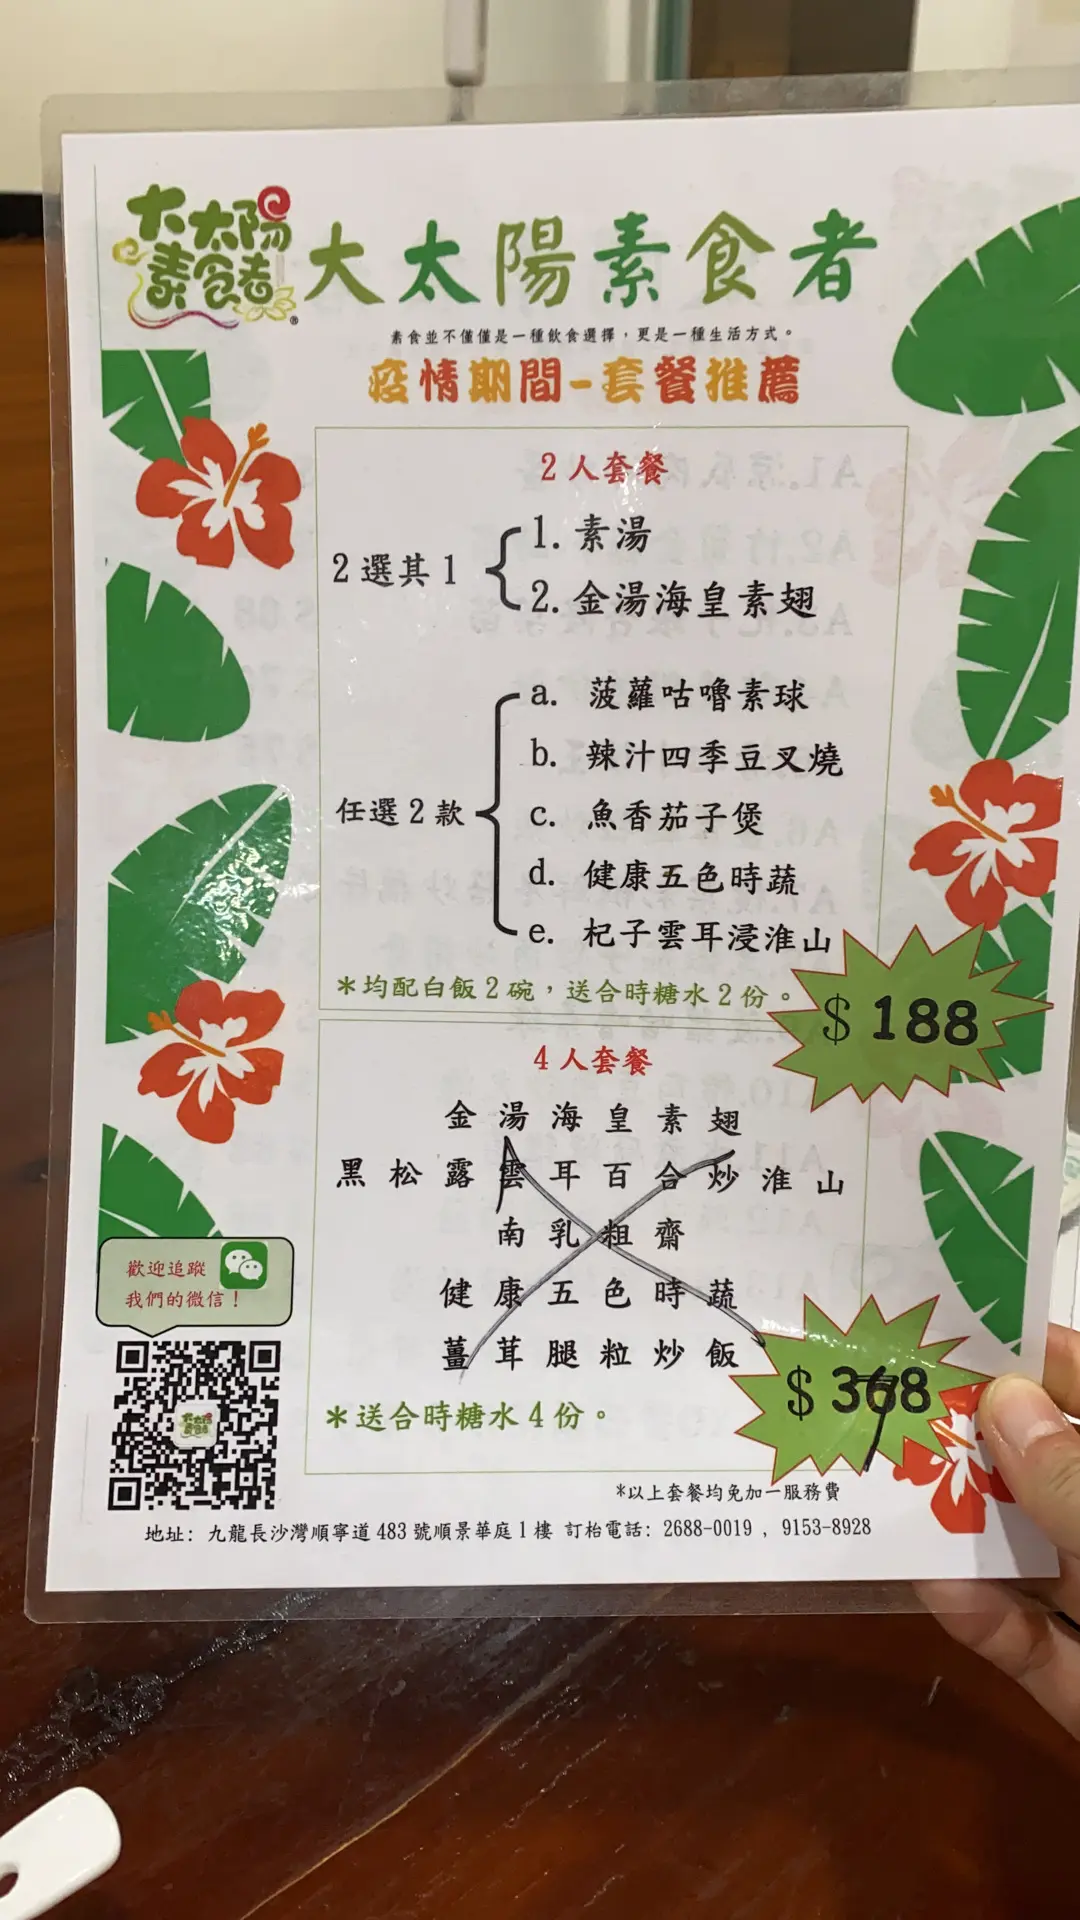 大太陽
素食者
®
大太陽素食者
素食並不僅僅是一種飲食選擇，更是一種生活方式。
疫情期間-套餐推薦
2人套餐
2選其1
1. 素湯
2. 金湯海皇素翅
任選2款
a. 菠蘿咕嚕素球
b. 辣汁四季豆叉燒
c. 魚香茄子煲
d. 健康五色時蔬
e. 杞子雲耳浸淮山
*均配白飯2碗，送合時糖水2份。
$188
4人套餐
金湯海皇素翅
黑松露雲耳百合炒淮山
南乳粗齋
健康五色時蔬
薑茸腿粒炒飯
*送合時糖水4份。
$368
歡迎追蹤
我們的微信！
*以上套餐均免加一服務費
地址: 九龍長沙灣順寧道483號順景華庭1樓 訂枱電話: 2688-0019 , 9153-8928